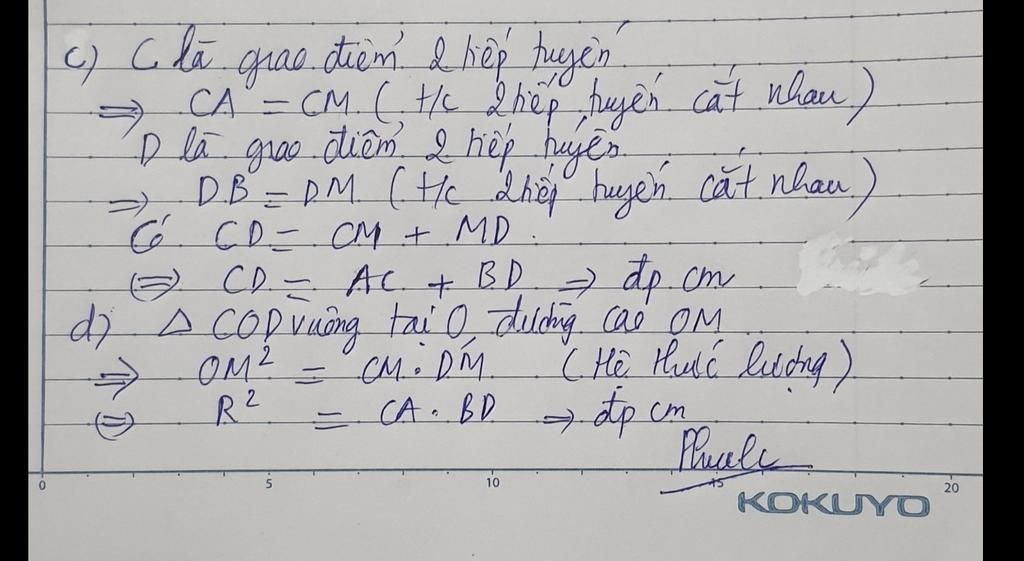 c) C là giao điểm 2 tiếp tuyến
⇒ CA = CM ( t/c 2 tiếp tuyến cắt nhau )
D là giao điểm 2 tiếp tuyến
⇒ DB = DM ( t/c 2 tiếp tuyến cắt nhau )
Có CD = CM + MD .
⇔ CD = AC + BD ⇒ đpcm
d) △ COD vuông tại O đường cao OM
⇒ OM² = CM . DM ( Hệ thức lượng )
⇔ R² = CA . BD ⇒ đpcm
0 5 10 15 20
KOKUYO